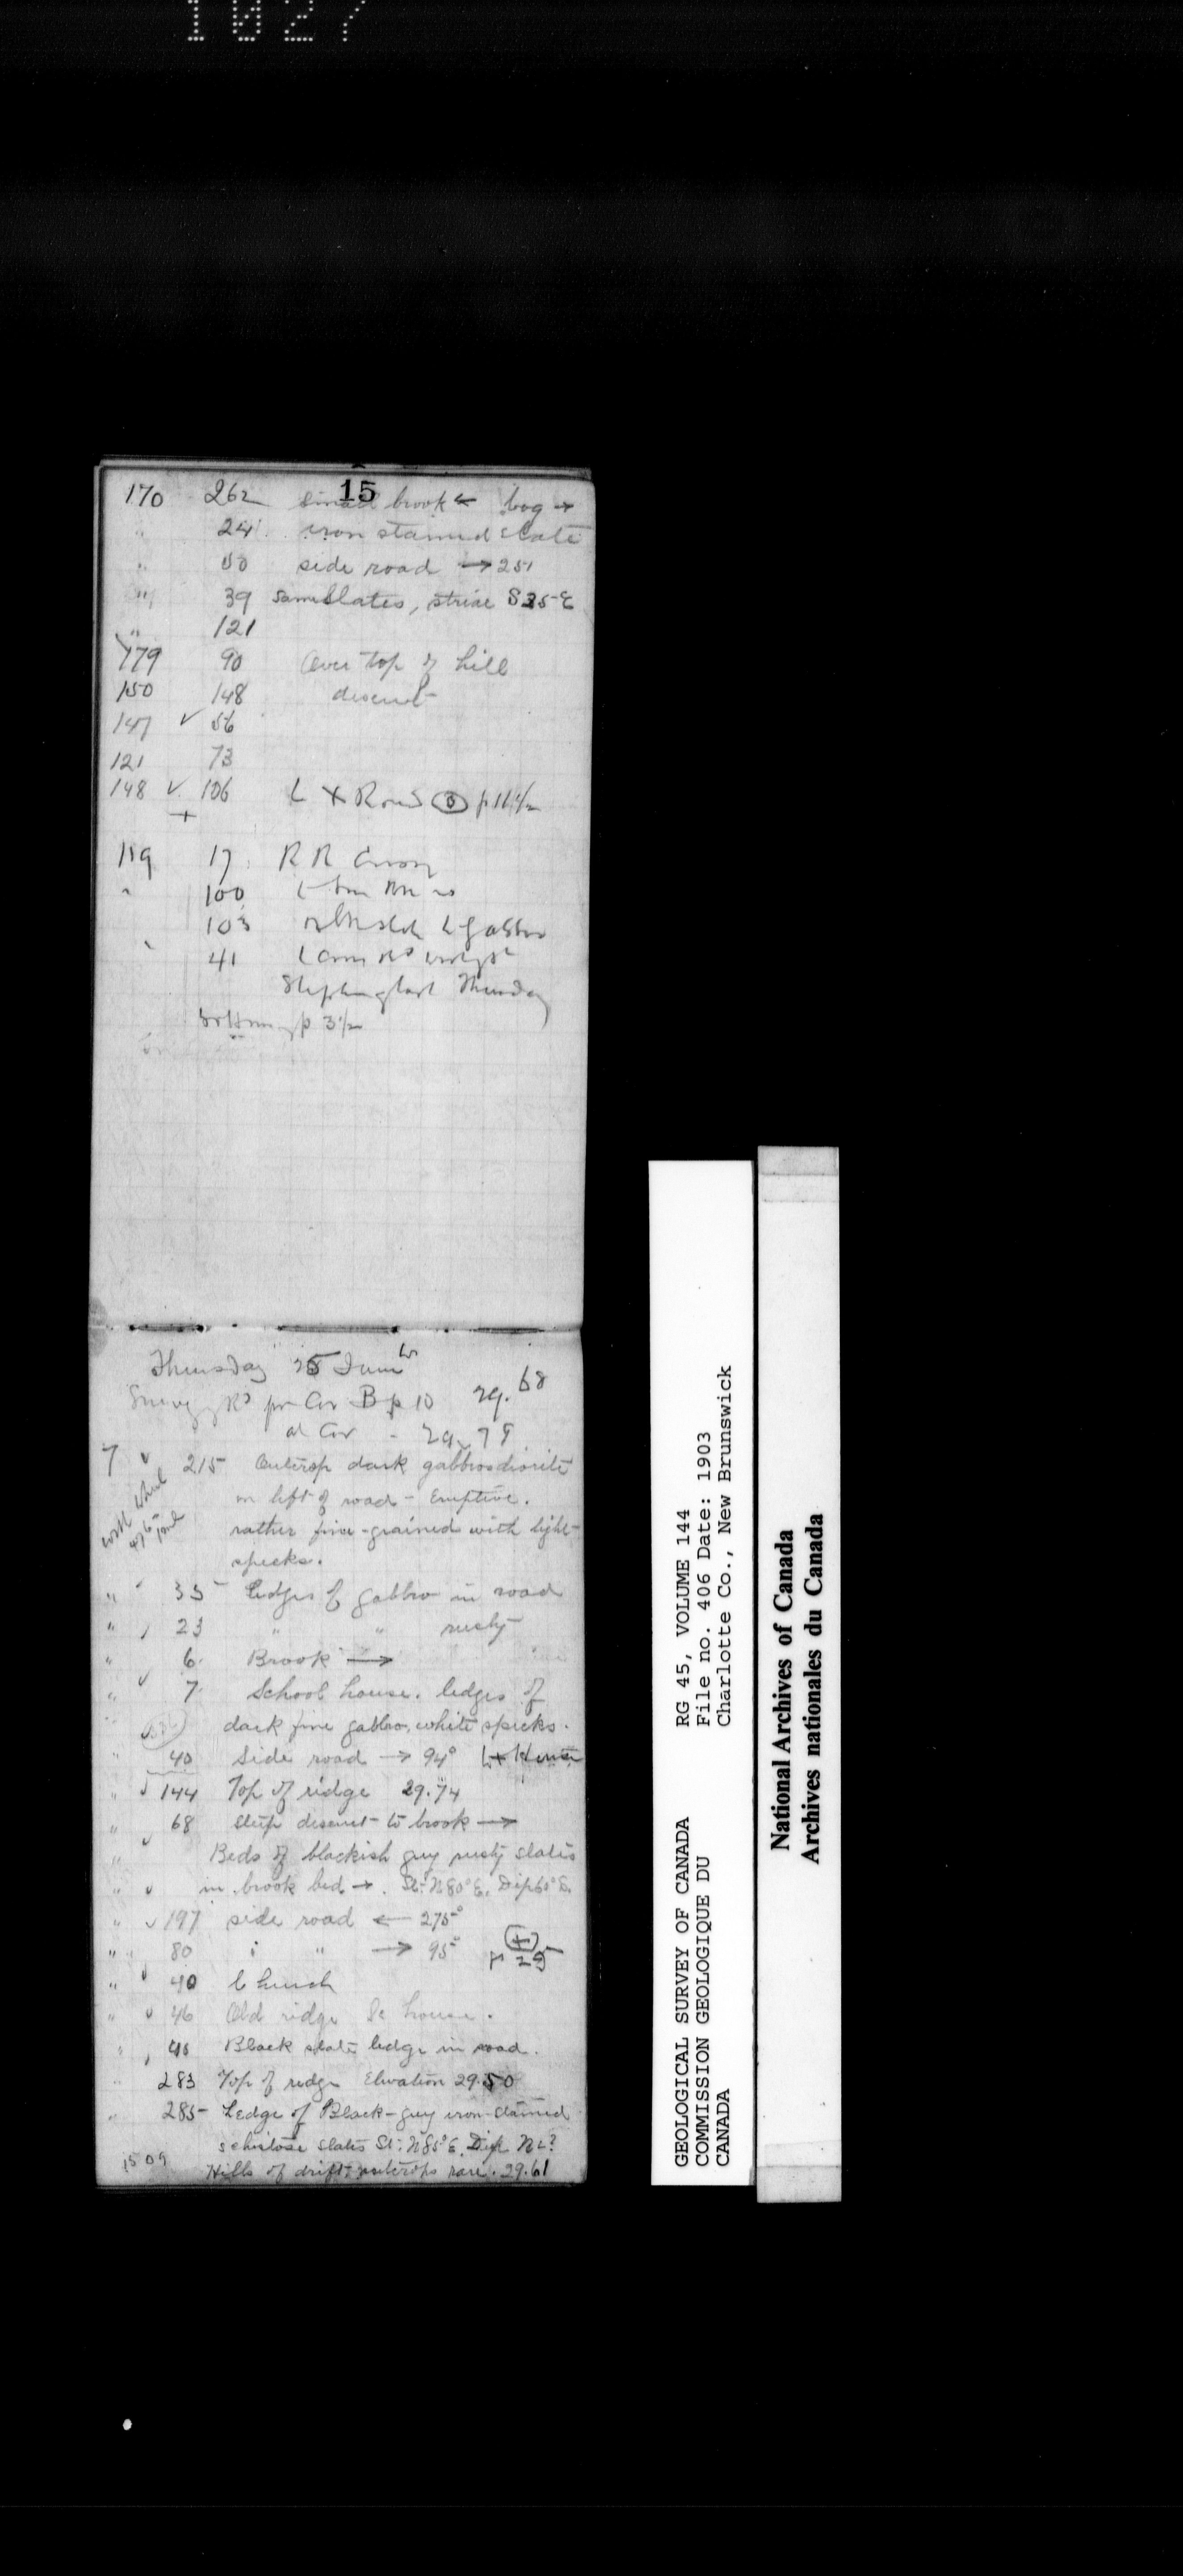 1027
15
170 262 small brook ← bog →
" 24 iron stained slate
" 50 side road → 251
" 39 same slates, striae S35E
" 121
179 90 Over top of hill
150 148 descent
147 ✓ 56
121 73
148 ✓ 106 X Road B p 11 1/2
+
119 17 R R
" 100
103
" 41
Thursday
bottom p 3 1/2
Thursday 25 June
Rd Cor B p 10 29.68
at Cor - 29.78
7 ✓ 215 Outcrop dark gabbro diorite
on left of road - Eruptive.
rather fine-grained with light
specks.
" 35 Ledges of gabbro in road
" 23 " " rusty
" 6 Brook →
" ✓ 7 School house. ledges of
dark fine gabbro, white specks.
" 40 Side road → 94°
" ✓ 144 Top of ridge 29.74
" 68 Steep descent to brook →
" ✓ Beds of blackish grey rusty slates
" ✓ in brook bed →. St. N80°E. Dip 60° S.
" ✓ 197 side road ← 275°
" 80 " " → 95° p 25
" ✓ 40 Church
" ✓ 46 Old ridge Sc house.
" 40 Black slate ledge in road.
" 283 Top of ridge Elevation 29.50
" 285 Ledge of Black-grey iron-stained
schistose slates St. N85°E. Dip N <?
1509 Hills of drift, outcrops rare. 29.61
GEOLOGICAL SURVEY OF CANADA RG 45, VOLUME 144
COMMISSION GEOLOGIQUE DU File no. 406 Date: 1903
CANADA Charlotte Co., New Brunswick
National Archives of Canada
Archives nationales du Canada